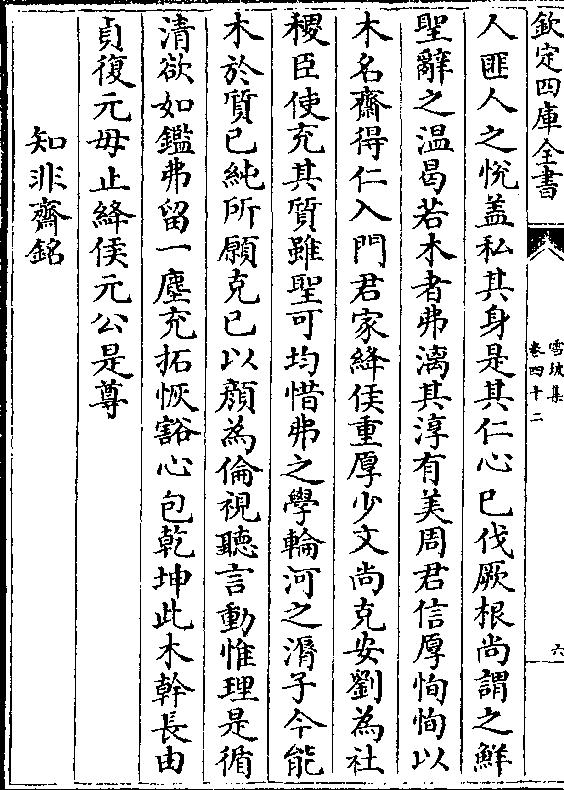 欽定四庫全書
雪坡集
卷四十二
六
人匪人之悅盖私其身是其仁心已伐厥根尚謂之鮮
聖辭之温曷若木者弗漓其淳有美周君信厚恂恂以
木名齋得仁入門君家絳侯重厚少文尚克安劉為社
稷臣使充其質雖聖可均惜弗之學輪河之漘子今能
木於質已純所願克已以顔為倫視聽言動惟理是循
清欲如鑑弗留一塵充拓恢豁心包乾坤此木幹長由
貞復元毋止絳侯元公是尊
知非齋銘